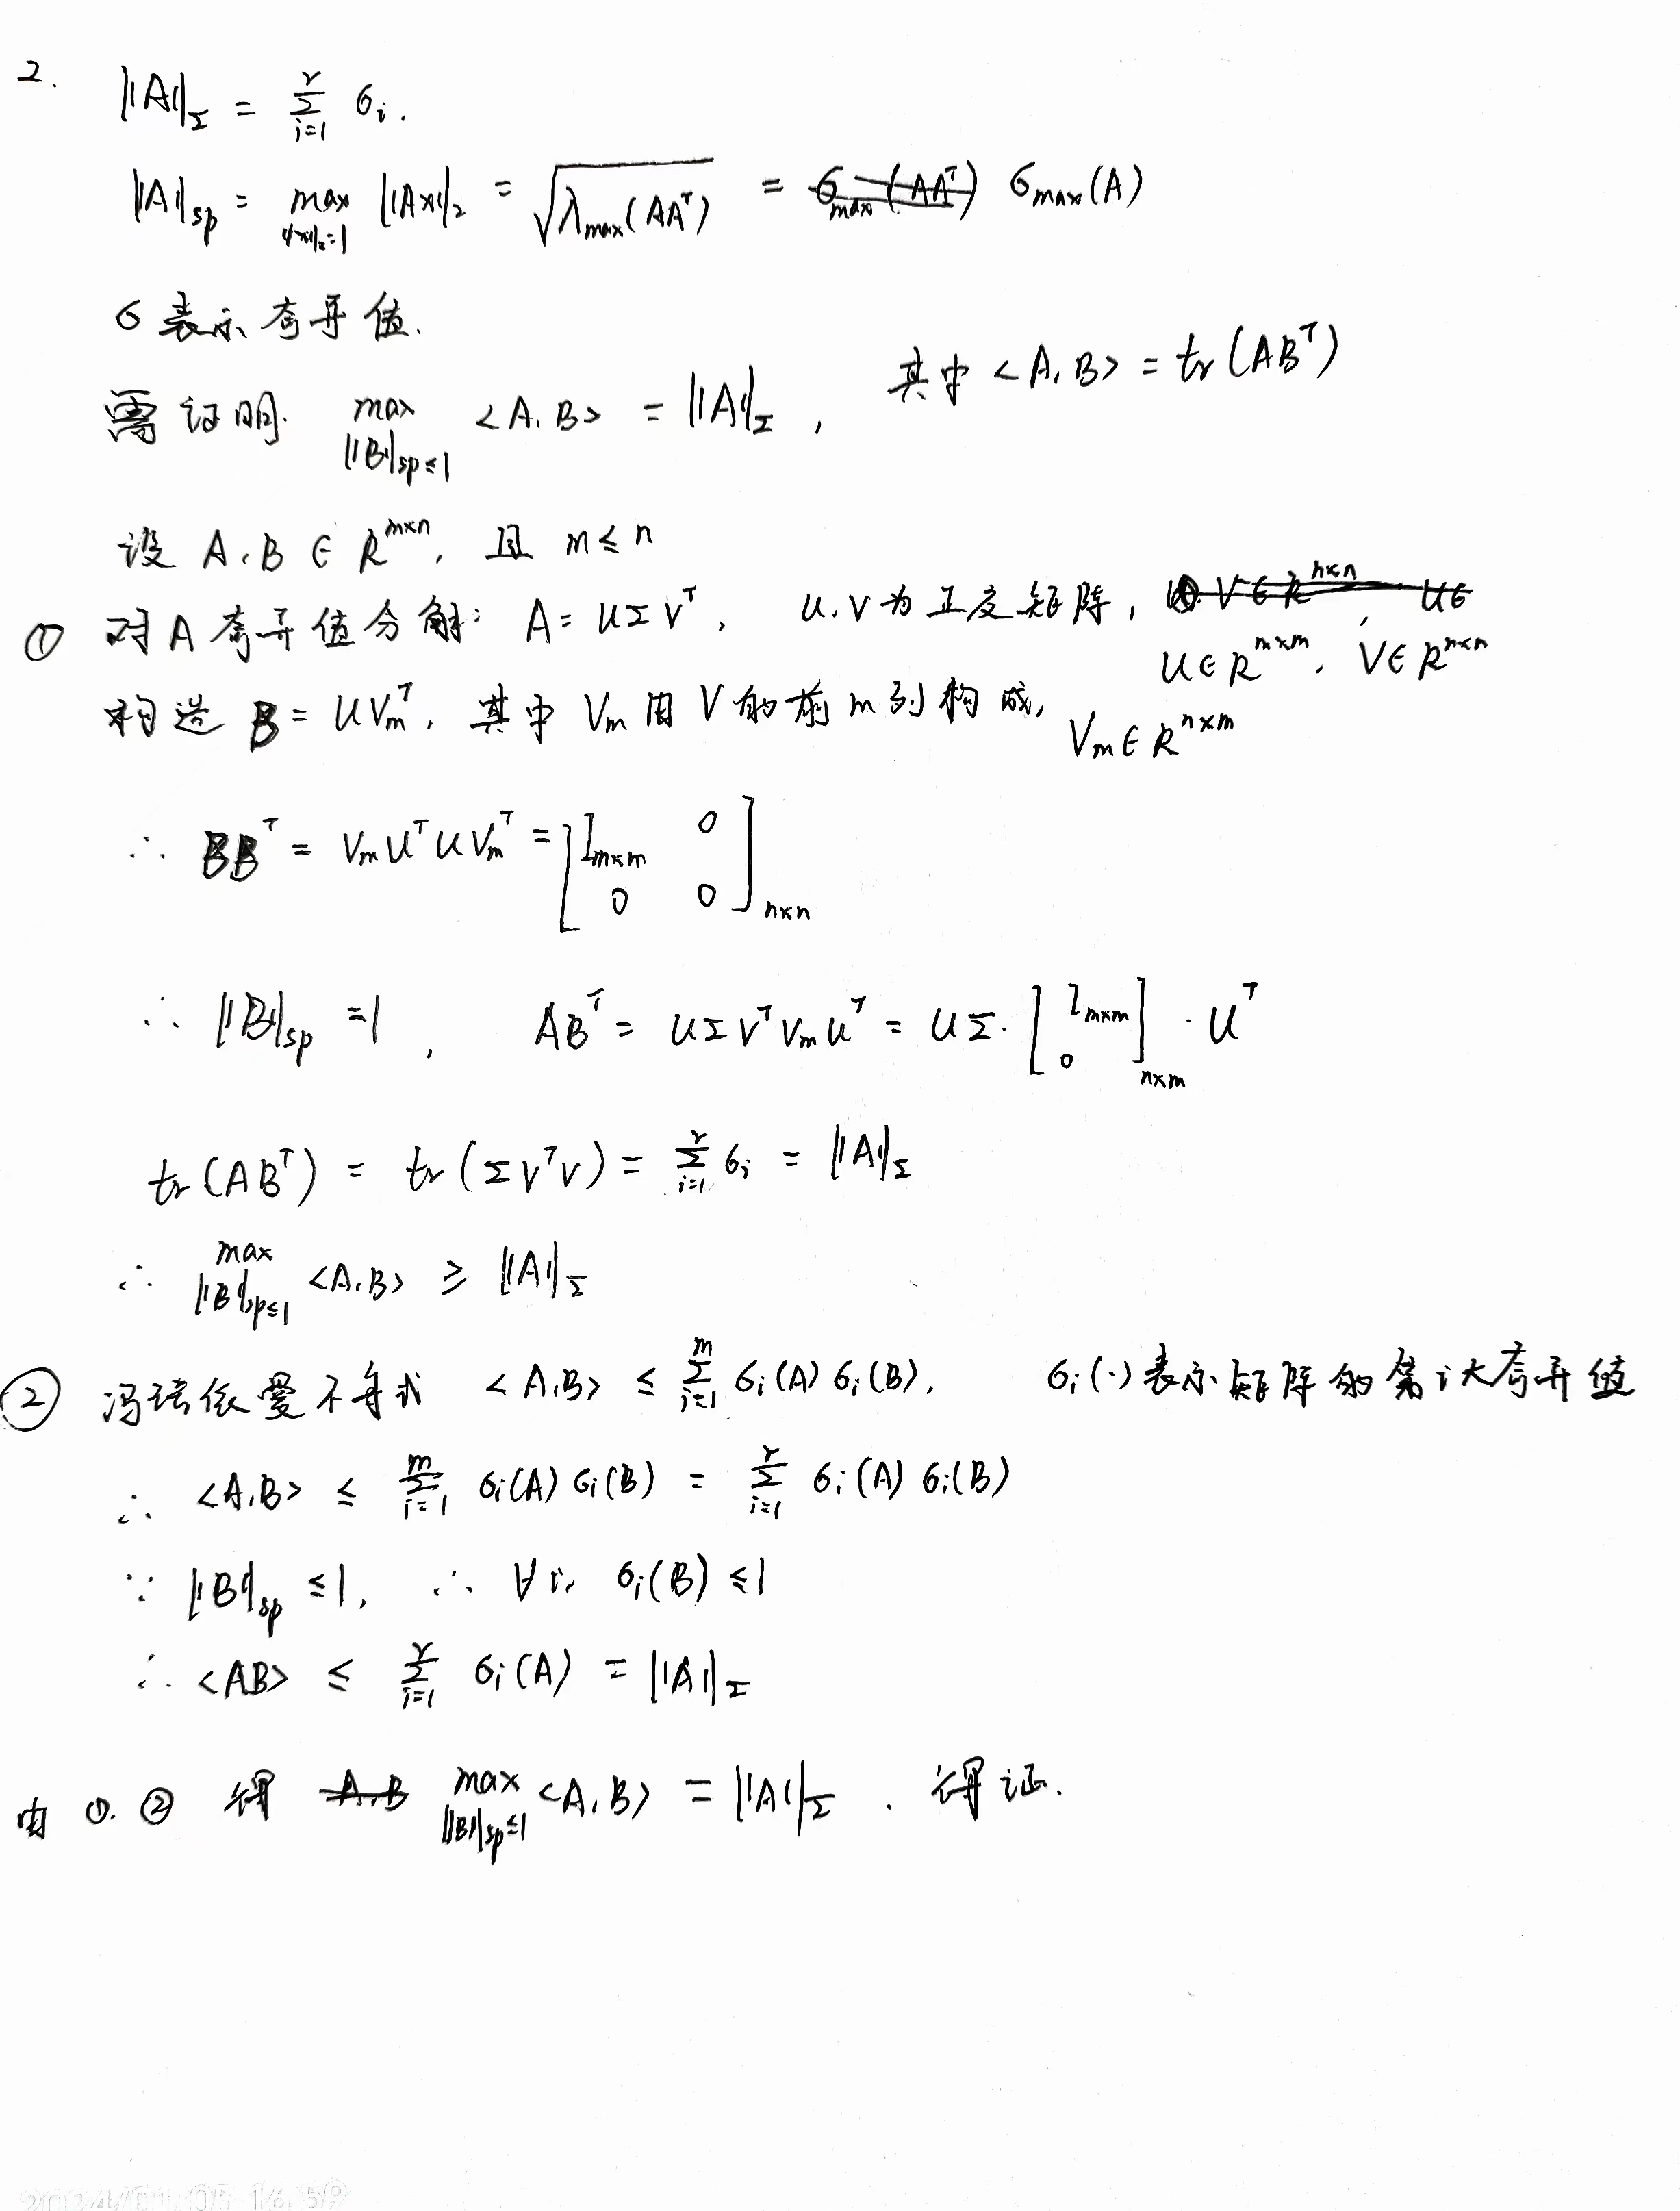 2. ||A||_Σ = Σ_{i=1}^{r} σ_i.
||A||_sp = max_{||x||_2=1} ||Ax||_2 = √(λ_max(AA^T)) = σ_max(A)
σ 表示奇异值.
需证明. max_{||B||_sp≤1} <A,B> = ||A||_Σ, 其中 <A,B> = tr(AB^T)
设 A,B ∈ R^{m×n}, 且 m≤n
① 对 A 奇异值分解: A = UΣV^T, U,V 为正交矩阵,
U∈R^{m×m}, V∈R^{n×n}
构造 B = UV_m^T, 其中 V_m 由 V 的前 m 列构成, V_m∈R^{n×m}
∴ BB^T = V_m U^T U V_m^T = [I_{m×m} 0; 0 0]_{n×n}
∴ ||B||_sp = 1, AB^T = UΣV^T V_m U^T = UΣ·[I_{m×m}; 0]_{n×m}·U^T
tr(AB^T) = tr(ΣV^T V) = Σ_{i=1}^{r} σ_i = ||A||_Σ
∴ max_{||B||_sp≤1} <A,B> ≥ ||A||_Σ
② 冯诺依曼不等式 <A,B> ≤ Σ_{i=1}^{m} σ_i(A) σ_i(B), σ_i(·)表示矩阵的第i大奇异值
∴ <A,B> ≤ Σ_{i=1}^{m} σ_i(A) σ_i(B) = Σ_{i=1}^{r} σ_i(A) σ_i(B)
∵ ||B||_sp ≤1, ∴ ∀i, σ_i(B) ≤1
∴ <AB> ≤ Σ_{i=1}^{r} σ_i(A) = ||A||_Σ
由 ①.② 得 max_{||B||_sp≤1} <A,B> = ||A||_Σ. 得证.
2024/01/05 16:59